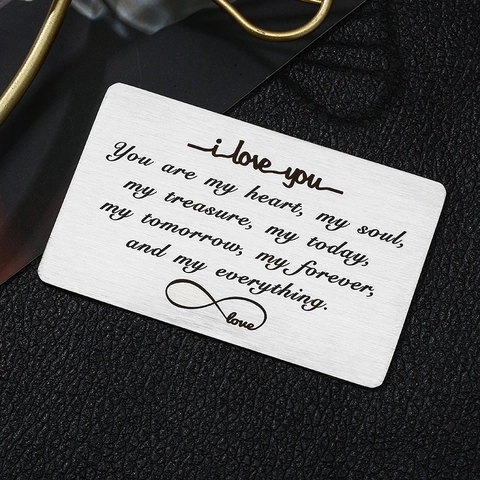 i love you
You are my heart, my soul,
my treasure, my today,
my tomorrow, my forever,
and my everything.
love